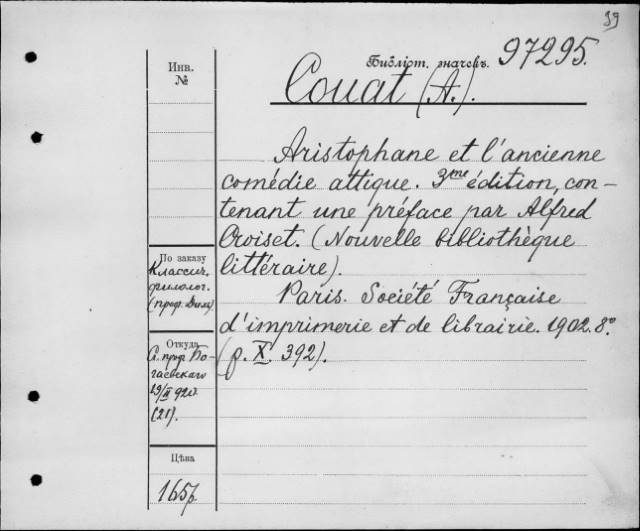 39
Библіот. значекъ. 97295.
Инв.
№
Couat (A.).
Aristophane et l'ancienne
comédie attique. 3me édition, con-
tenant une préface par Alfred
Croiset. (Nouvelle bibliothèque
littéraire).
Paris. Société Française
d'imprimerie et de librairie. 1902. 8º.
(p. X. 392).
По заказу
Классич.
филолог.
(проф.
Откуда
проф. Бо-
гаевскаго
(21).
Цѣна
165